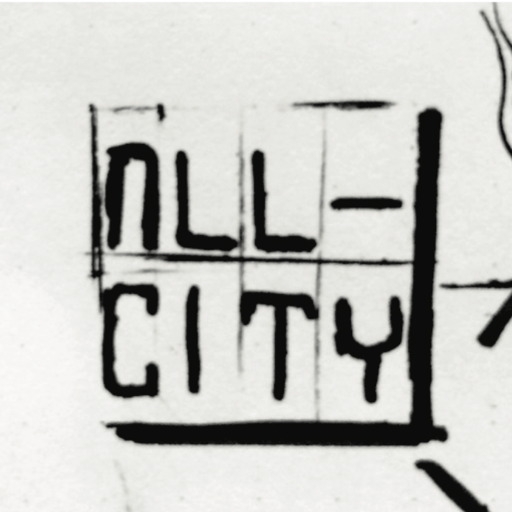 ALL-
CITY